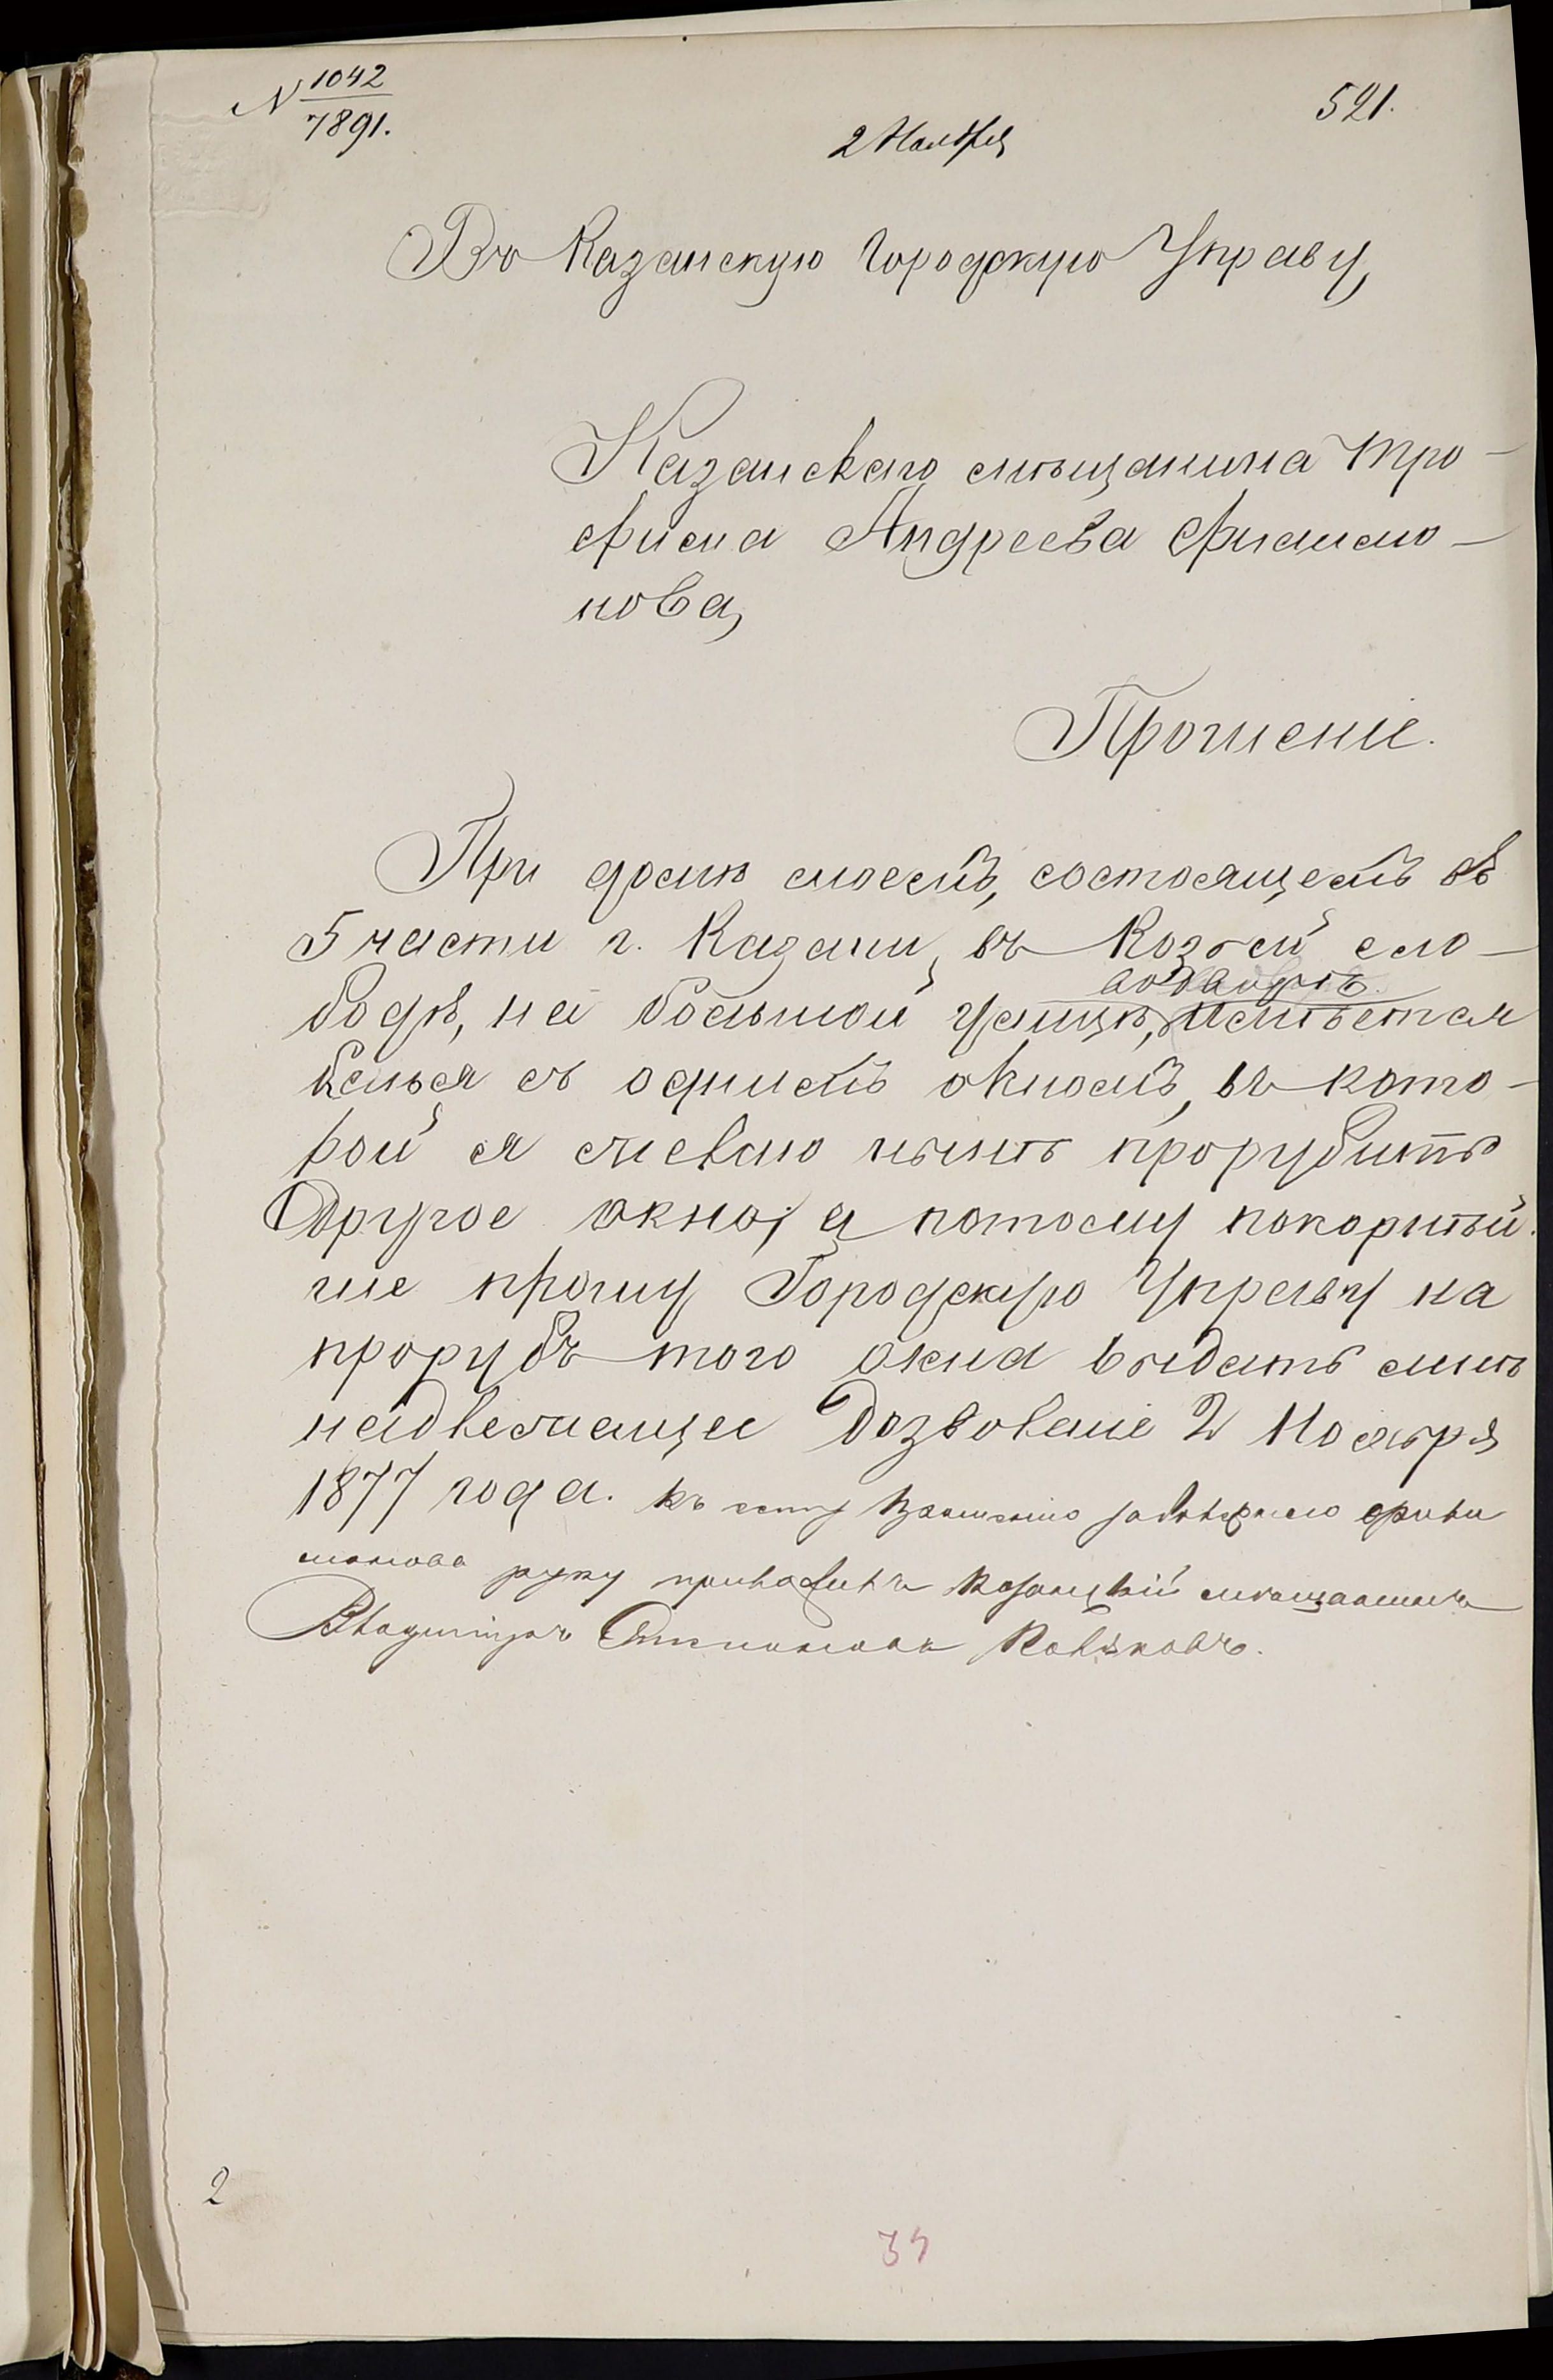 N 1042
7891.
521.
2 Ноября
Въ Казанскую Городскую Управу,
Казанскаго мѣщанина Тро-
фима Андреева Филимо-
нова,
Прошеніе.
При домѣ моемъ, состоящемъ въ
5 части г. Казани, въ Козьей сло-
бодѣ, на большой улицѣ, имѣется
келья съ однимъ окномъ, въ кото-
рой я желаю нынѣ прорубить
другое окно, а потому покорнѣй
ше прошу Городскую Управу на
прорубъ того окна выдать мнѣ
надлежащее дозволеніе 2 Ноября
1877 года. Къ сему прошенію
руку приложилъ Казанскій мѣщанинъ
Владимиръ